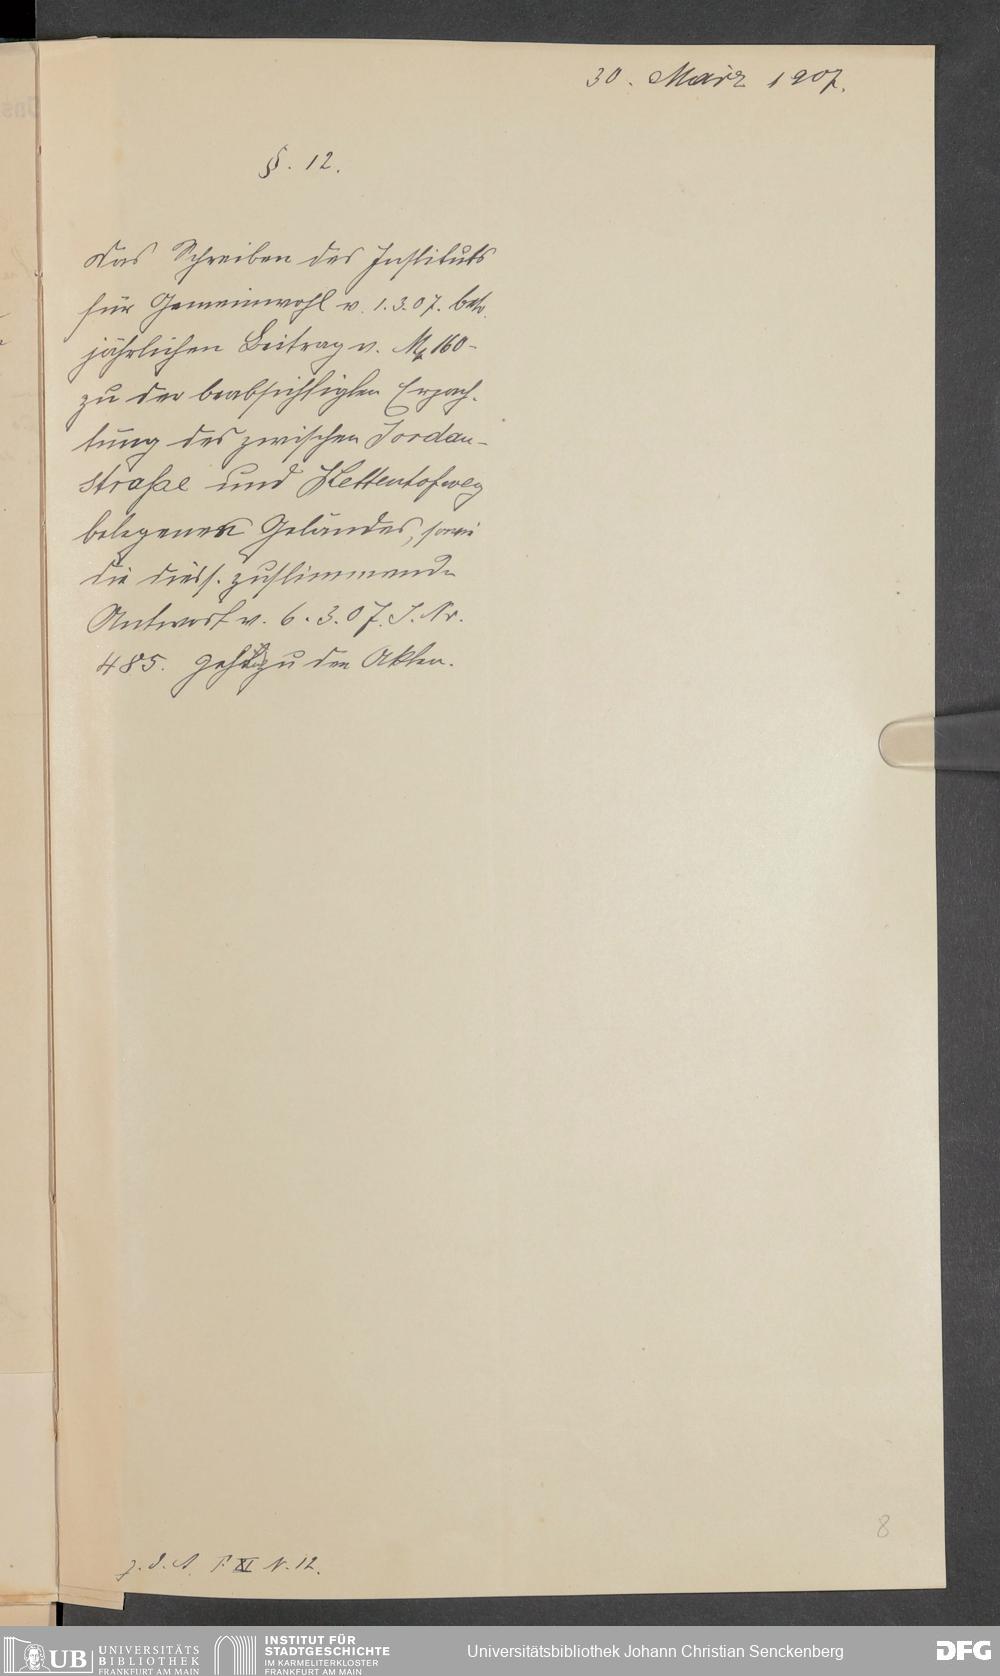 30. März 1907.
§. 12.
Das Schreiben des Instituts
für Gemeinwohl v. 1.3.07. betr.
jährlichen Beitrag v. M 160-
zu der beabsichtigten Erpach-
tung des zwischen Jordan-
straße und Kettenhofweg
belegenen Geländes, sowie
die diess. zustimmende
Antwort v. 6.3.07. J. Nr.
485. geht zu den Akten.
z. d. A. F. XI N. 12.
8
UB UNIVERSITÄTS
BIBLIOTHEK
FRANKFURT AM MAIN
INSTITUT FÜR
STADTGESCHICHTE
IM KARMELITERKLOSTER
FRANKFURT AM MAIN
Universitätsbibliothek Johann Christian Senckenberg
DFG